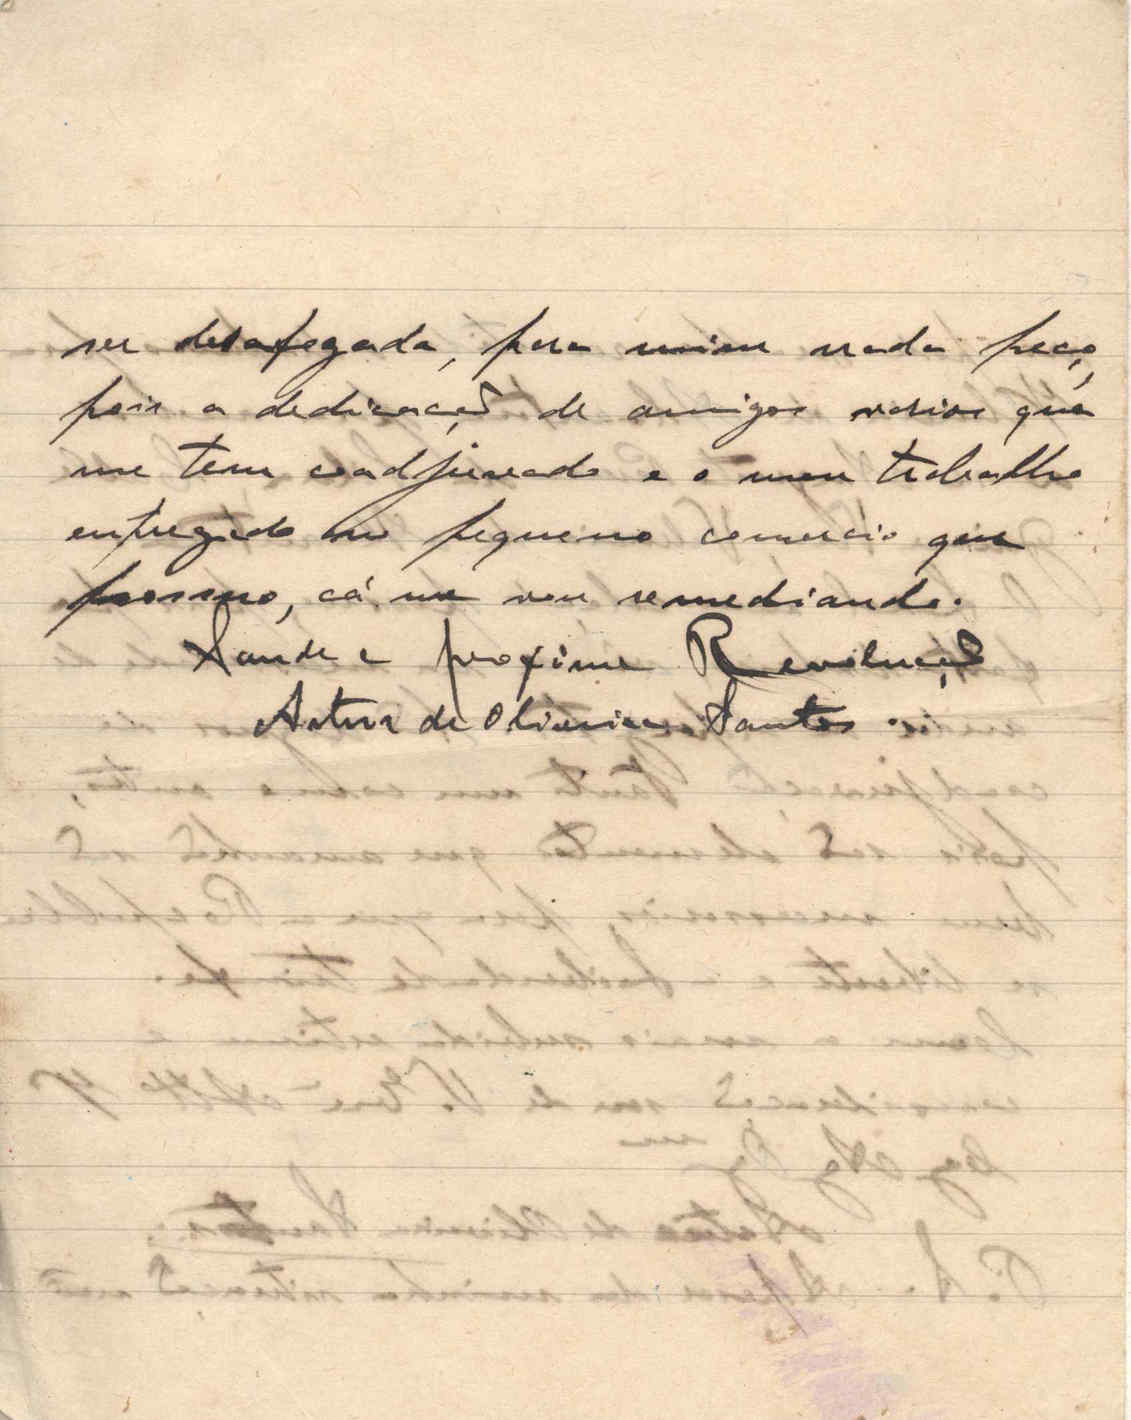 ser desafogada, para mim nada peço,
pois a dedicação de amigos varios que
me tem coadjuvado e o meu trabalho
empregado no pequeno comercio que
possuo, cá me vou remediando.
Saude e proxima Revolução
Artur de Oliveira Santos.